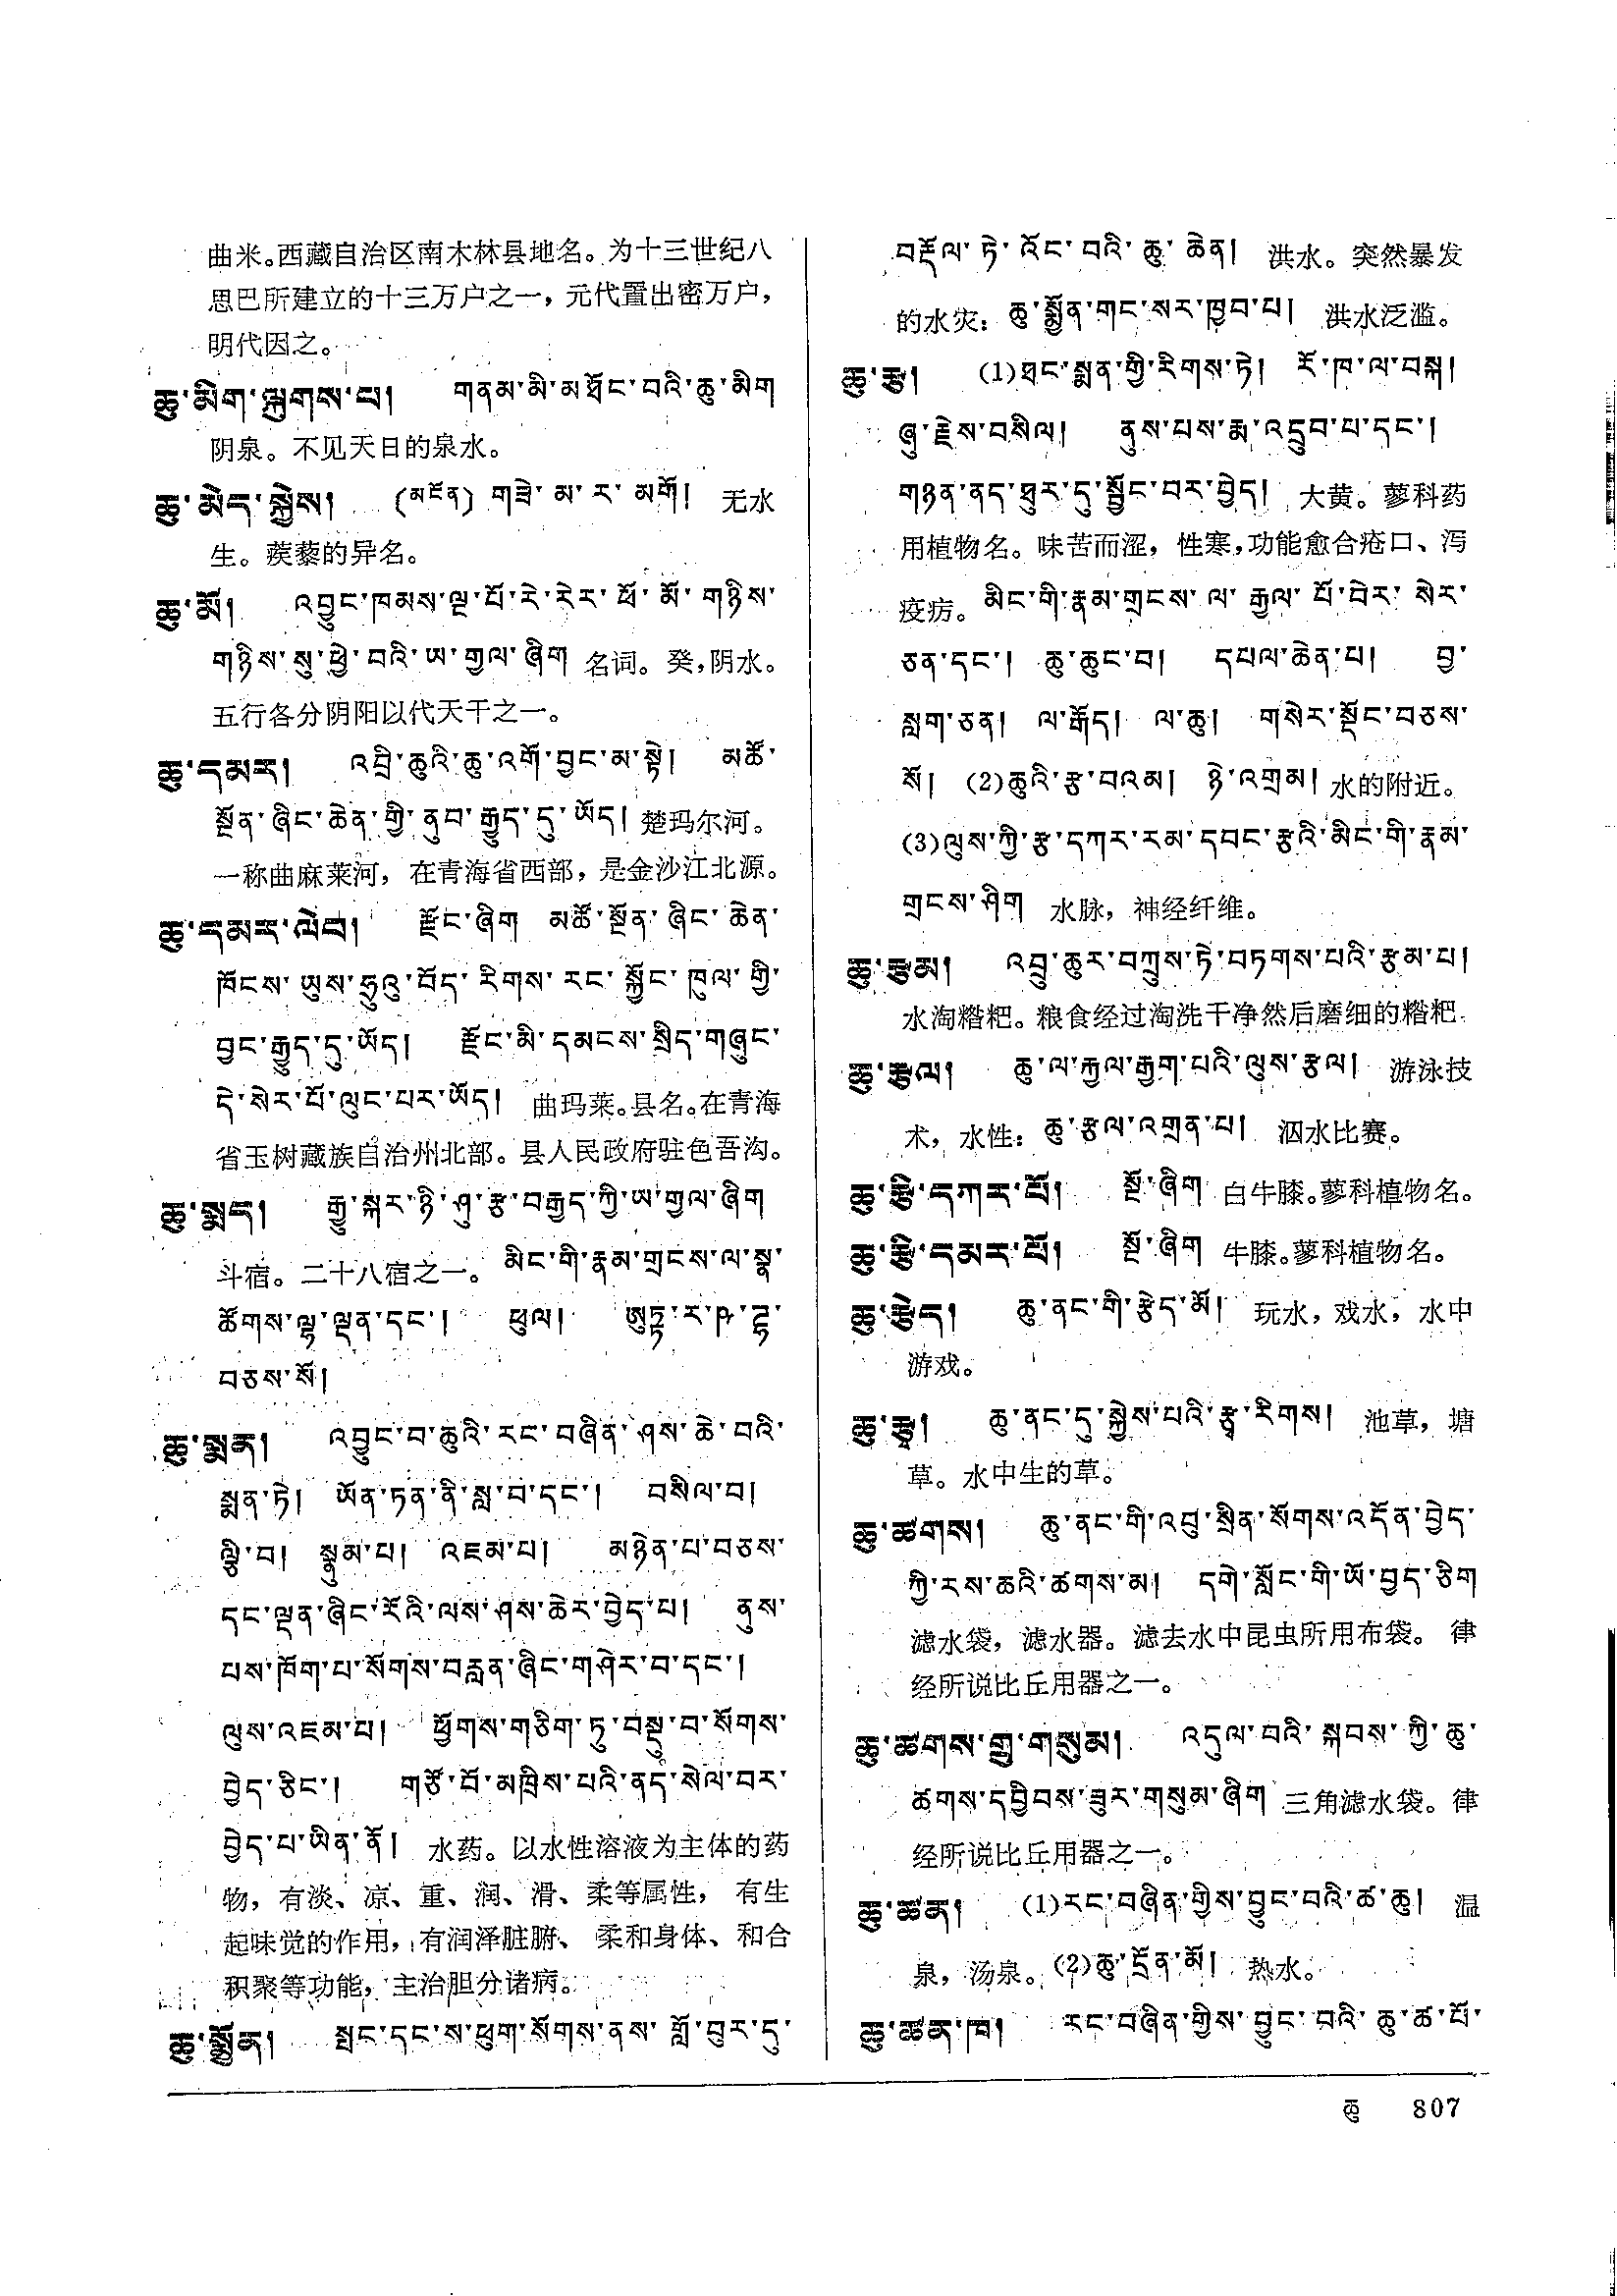 曲米。西藏自治区南木林县地名。为十三世纪八
思巴所建立的十三万户之一，元代置出密万户，
明代因之。
ཆུ་མིག་ལྐུགས་པ། གནམ་མི་མཐོང་བའི་ཆུ་མིག
阴泉。不见天日的泉水。
ཆུ་མེད་སྐྱེས། (མངོན) གཟེ་མ་ར་མགོ། 无水
生。蒺藜的异名。
ཆུ་མོ། འབྱུང་ཁམས་ལྔ་པོ་རེ་རེར་ཕོ་མོ་གཉིས་
གཉིས་སུ་ཕྱེ་བའི་ཡ་གྱལ་ཞིག 名词。癸，阴水。
五行各分阴阳以代天干之一。
ཆུ་དམར། འབྲི་ཆུའི་ཆུ་འགོ་བྱང་མ་སྟེ། མཚོ་
སྔོན་ཞིང་ཆེན་གྱི་ནུབ་རྒྱུད་དུ་ཡོད། 楚玛尔河。
一称曲麻莱河，在青海省西部，是金沙江北源。
ཆུ་དམར་ལེབ། རྫོང་ཞིག མཚོ་སྔོན་ཞིང་ཆེན་
ཁོངས་ཡུས་ཧྲུའུ་བོད་རིགས་རང་སྐྱོང་ཁུལ་གྱི་
བྱང་རྒྱུད་དུ་ཡོད། རྫོང་མི་དམངས་སྲིད་གཞུང་
དེ་སེར་པོ་ལུང་པར་ཡོད། 曲玛莱。县名。在青海
省玉树藏族自治州北部。县人民政府驻色吾沟。
ཆུ་སྨད། རྒྱུ་སྐར་ཉི་ཤུ་རྩ་བརྒྱད་ཀྱི་ཡ་གྱལ་ཞིག
斗宿。二十八宿之一。མིང་གི་རྣམ་གྲངས་ལ་སྣ་
ཚོགས་ལྷ་ལྡན་དང་། ཕུལ།
བཅས་སོ།
ཆུ་སྨན། འབྱུང་བ་ཆུའི་རང་བཞིན་ཤས་ཆེ་བའི་
སྨན་ཏེ། ཡོན་ཏན་ནི་སླ་བ་དང་། བསིལ་བ།
ལྕི་བ། སྣུམ་པ། འཇམ་པ། མཉེན་པ་བཅས་
དང་ལྡན་ཞིང་རོའི་ལས་ཤས་ཆེར་བྱེད་པ། ནུས་
པས་ཁོག་པ་སོགས་བརླན་ཞིང་གཤེར་བ་དང་།
ལུས་འཇམ་པ། ཕྱོགས་གཅིག་ཏུ་བསྡུ་བ་སོགས་
བྱེད་ཅིང་། གཙོ་བོ་མཁྲིས་པའི་ནད་སེལ་བར་
བྱེད་པ་ཡིན་ནོ། 水药。以水性溶液为主体的药
物，有淡、凉、重、润、滑、柔等属性，有生
起味觉的作用，有润泽脏腑、柔和身体、和合
积聚等功能，主治胆分诸病。
ཆུ་སྨྱོན། སྤང་དང་ས་ཕུག་སོགས་ནས་གློ་བུར་དུ་
བརྡོལ་ཏེ་འོང་བའི་ཆུ་ཆེན། 洪水。突然暴发
的水灾：ཆུ་སྨྱོན་གང་སར་ཁྱབ་པ། 洪水泛滥。
ཆུ་རྩ། (1)ཐང་སྨན་གྱི་རིགས་ཏེ། རོ་ཁ་ལ་བསྐ།
ཞུ་རྗེས་བསིལ། ནུས་པས་རྨ་འདྲུབ་པ་དང་།
གཉན་ནད་ཐུར་དུ་སྦྱོང་བར་བྱེད། 大黄。蓼科药
用植物名。味苦而涩，性寒，功能愈合疮口、泻
疫疠。མིང་གི་རྣམ་གྲངས་ལ་རྒྱལ་པོ་བེར་སེར་
ཅན་དང་། ཆུ་ཆུང་བ། དཔལ་ཆེན་པ། བྱ་
སླག་ཅན། ལ་རྒོད། ལ་ཆུ། གསེར་སྡོང་བཅས་
སོ། (2)ཆུའི་རྩ་བའམ། ཉེ་འགྲམ། 水的附近。
(3)ལུས་ཀྱི་རྩ་དཀར་རམ་དབང་རྩའི་མིང་གི་རྣམ་
གྲངས་ཤིག 水脉，神经纤维。
ཆུ་རྩམ། འབྲུ་ཆུར་བཀྲུས་ཏེ་བཏགས་པའི་རྩམ་པ།
水淘糌粑。粮食经过淘洗干净然后磨细的糌粑。
ཆུ་རྩལ། ཆུ་ལ་རྐྱལ་རྒྱག་པའི་ལུས་རྩལ། 游泳技
术，水性：ཆུ་རྩལ་འགྲན་པ། 泅水比赛。
ཆུ་རྩི་དཀར་པོ། སྔོ་ཞིག 白牛膝。蓼科植物名。
ཆུ་རྩི་དམར་པོ། སྔོ་ཞིག 牛膝。蓼科植物名。
ཆུ་རྩེད། ཆུ་ནང་གི་རྩེད་མོ། 玩水，戏水，水中
游戏。
ཆུ་རྩྭ། ཆུ་ནང་དུ་སྐྱེས་པའི་རྩྭ་རིགས། 池草，塘
草。水中生的草。
ཆུ་ཚགས། ཆུ་ནང་གི་འབུ་སྲིན་སོགས་འདོན་བྱེད་
ཀྱི་རས་ཆའི་ཚགས་མ། དགེ་སློང་གི་ཡོ་བྱད་ཅིག
滤水袋，滤水器。滤去水中昆虫所用布袋。律
经所说比丘用器之一。
ཆུ་ཚགས་གྲུ་གསུམ། འདུལ་བའི་སྐབས་ཀྱི་ཆུ་
ཚགས་དབྱིབས་ཟུར་གསུམ་ཞིག 三角滤水袋。律
经所说比丘用器之一。
ཆུ་ཚན། (1)རང་བཞིན་གྱིས་བྱུང་བའི་ཚ་ཆུ། 温
泉，汤泉。(2)ཆུ་དྲོན་མོ། 热水。
ཆུ་ཚན་ཁ། རང་བཞིན་གྱིས་བྱུང་བའི་ཆུ་ཚ་པོ་
ཆུ 807